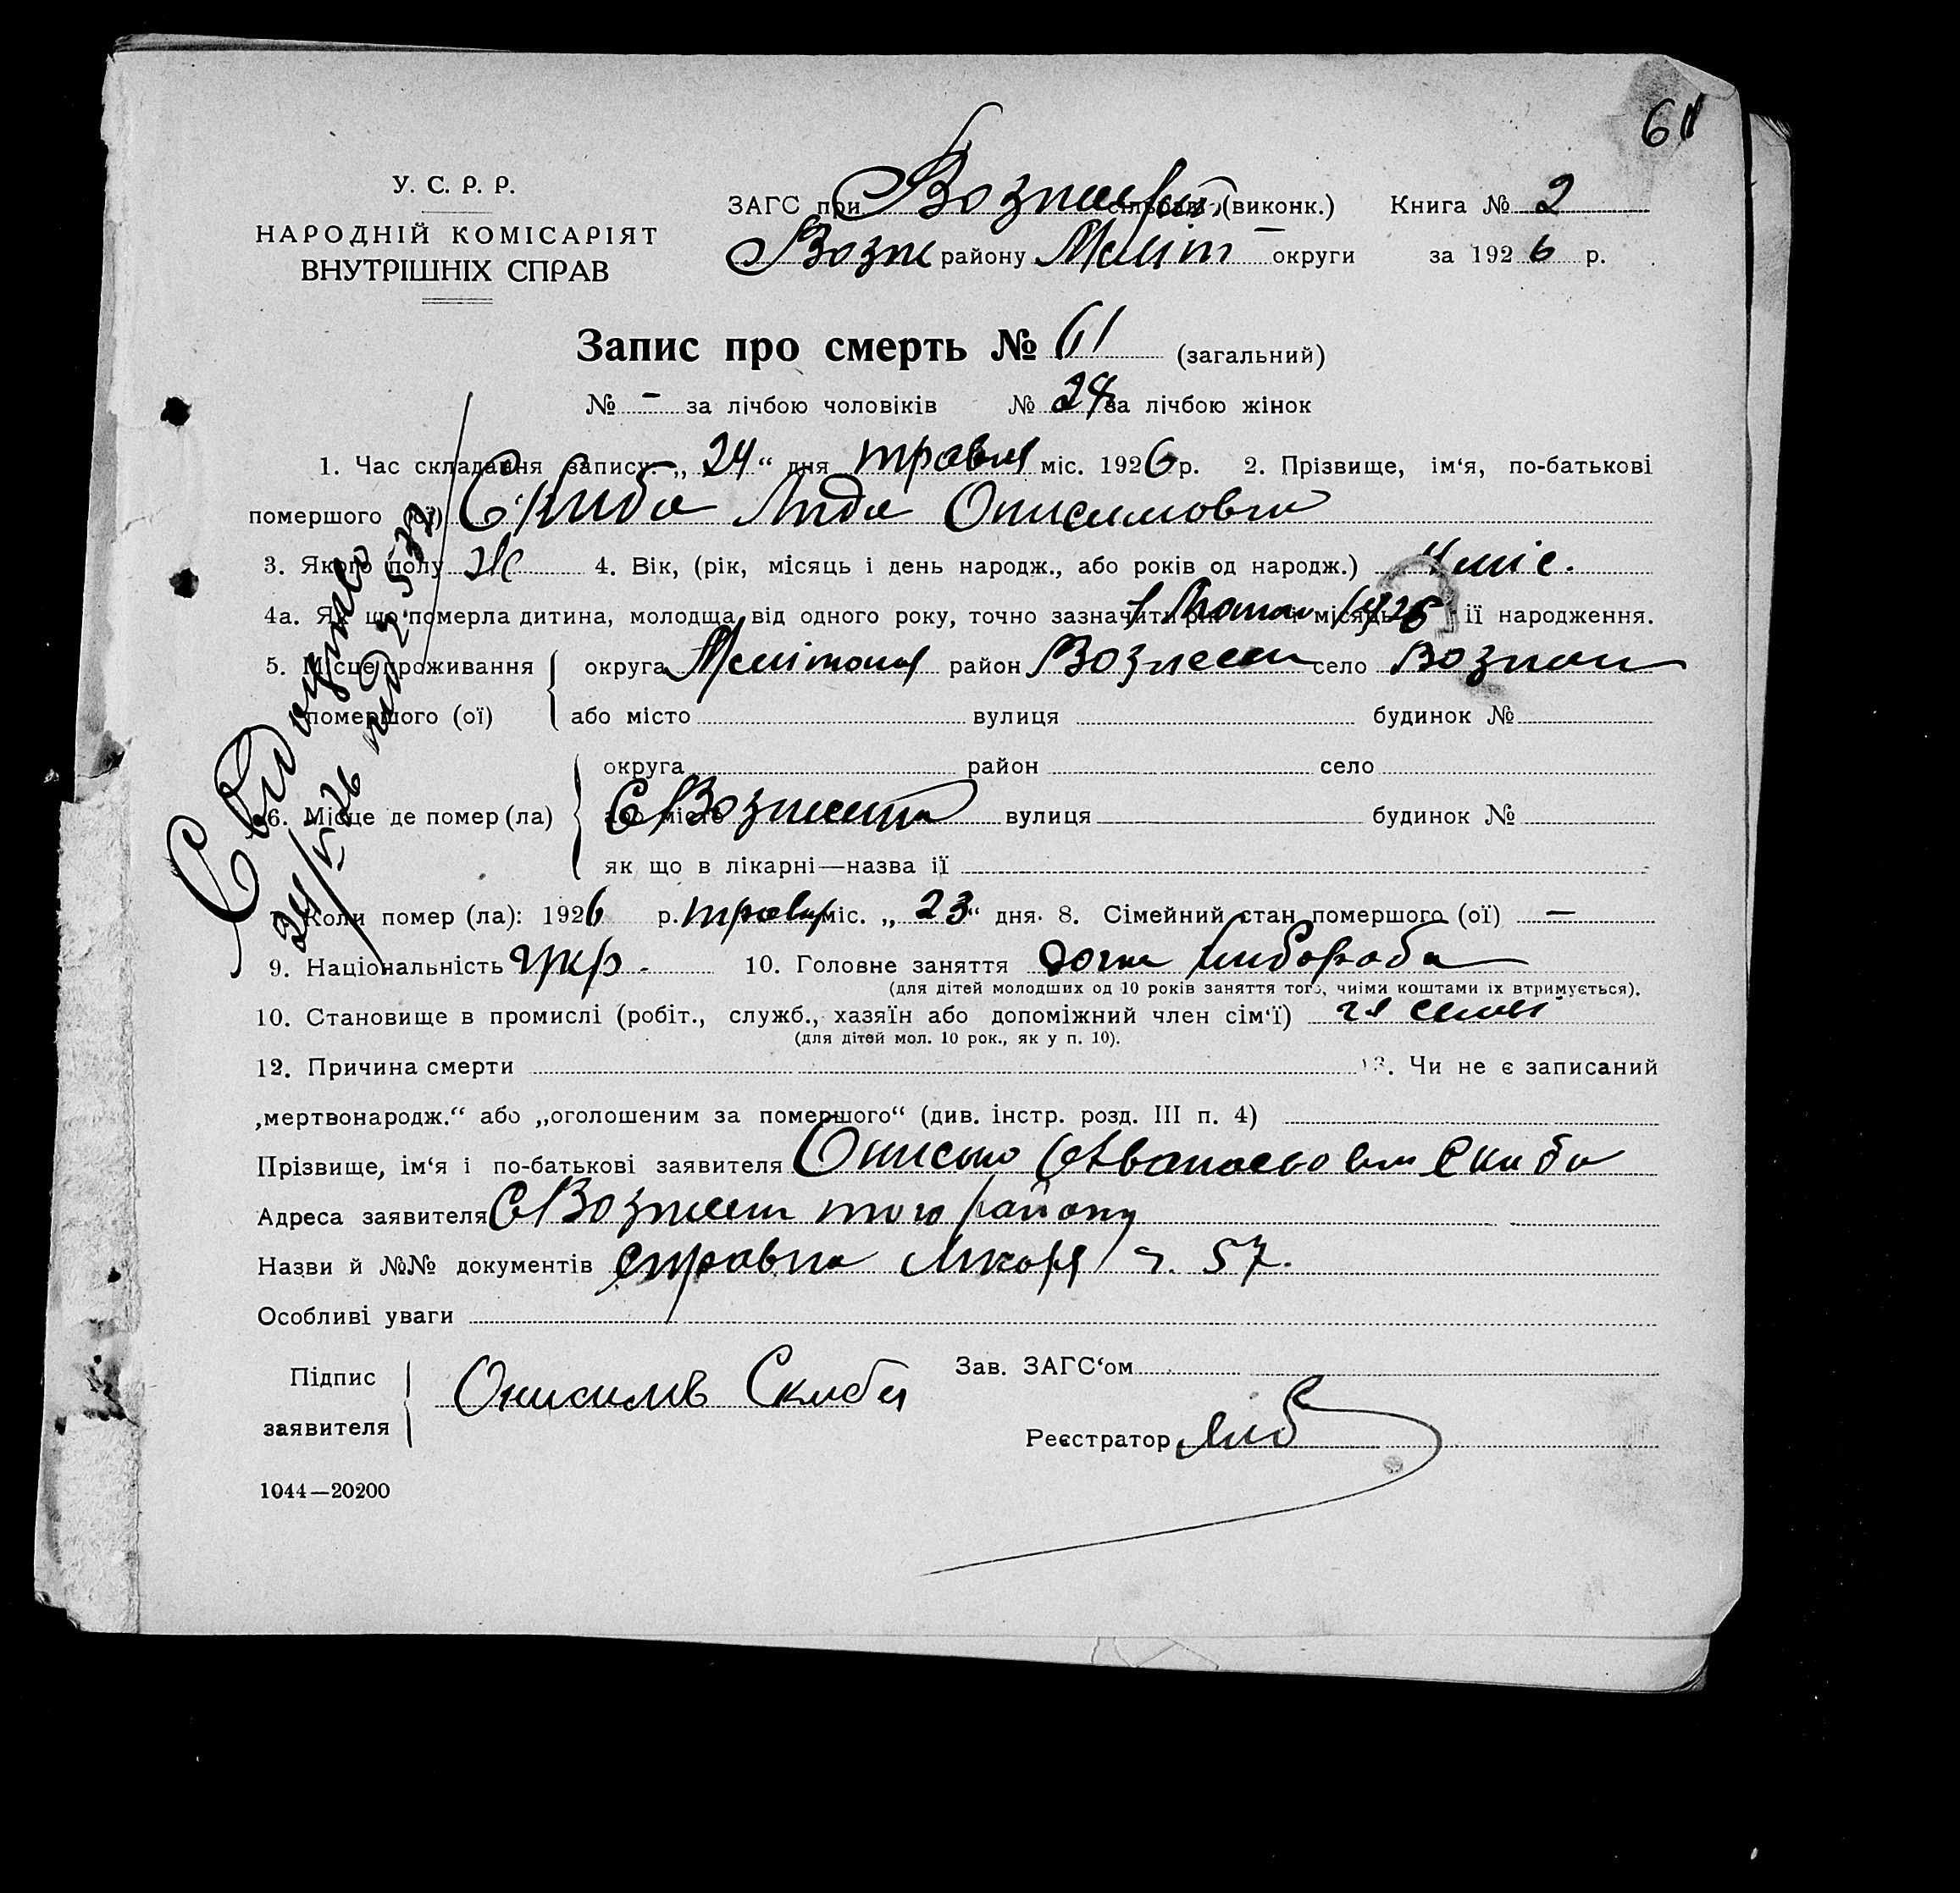 61
У. С. Р. Р.
НАРОДНІЙ КОМІСАРІЯТ
ВНУТРІШНІХ СПРАВ
ЗАГС при (виконк.) Книга № 2
Возне району Меліт округи за 1926 р.
Запис про смерть № 61 (загальний)
№ - за лічбою чоловіків № 28 за лічбою жінок
1. Час складання запису „ 24 “ дня травня міс. 1926 р. 2. Прізвище, ім‘я, по-батькові
помершого (ої) Скиба Лида Онисимовна
3. Якого полу Ж 4. Вік, (рік, місяць і день народж., або років од народж.) 4 міс.
4а. Як що померла дитина, молодша від одного року, точно зазначити рік і місяць 1926 ії народження.
5. Місце проживання помершого (ої) округа район Вознесен село Вознесен
або місто вулиця будинок №
округа район село
6. Місце де помер (ла) або місто С Вознесенка вулиця будинок №
як що в лікарні—назва ії
7. Коли помер (ла): 1926 р. травня міс. „ 23 “ дня. 8. Сімейний стан помершого (ої) —
9. Національність укр. 10. Головне заняття дочка хлібороба
(для дітей молодших од 10 років заняття того, чиїми коштами їх втримується).
10. Становище в промислі (робіт., служб., хазяїн або допоміжний член сім‘ї) чл семьі
(для дітей мол. 10 рок., як у п. 10).
12. Причина смерти 13. Чи не є записаний
„мертвонародж.“ або „оголошеним за помершого“ (див. інстр. розд. III п. 4)
Прізвище, ім‘я і по-батькові заявителя Скиба
Адреса заявителя С Вознесен того району
Назви й №№ документів справка лікаря ч. 57.
Особливі уваги
Підпис заявителя Онисимъ Скиба
Зав. ЗАГС‘ом
Реєстратор
1044—20200
Свідоцтво
24/V 26 під 2532